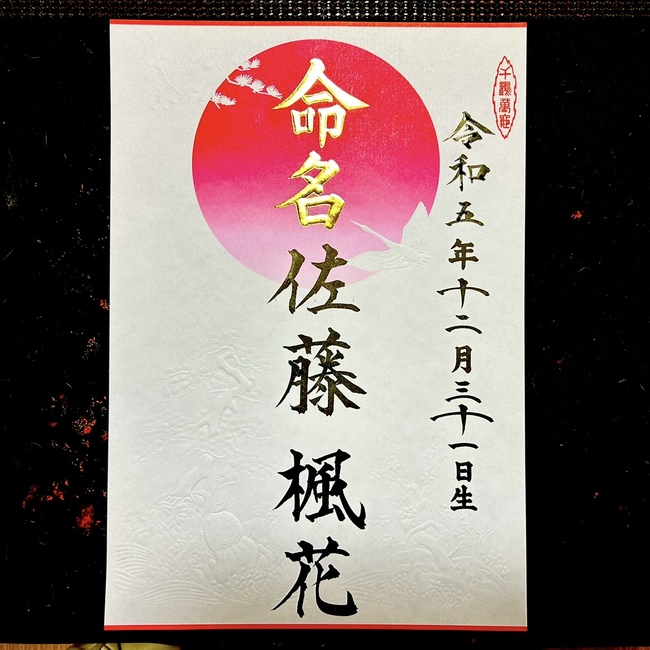 千穐萬歳
令和五年十二月三十一日生
命名
佐藤 楓花